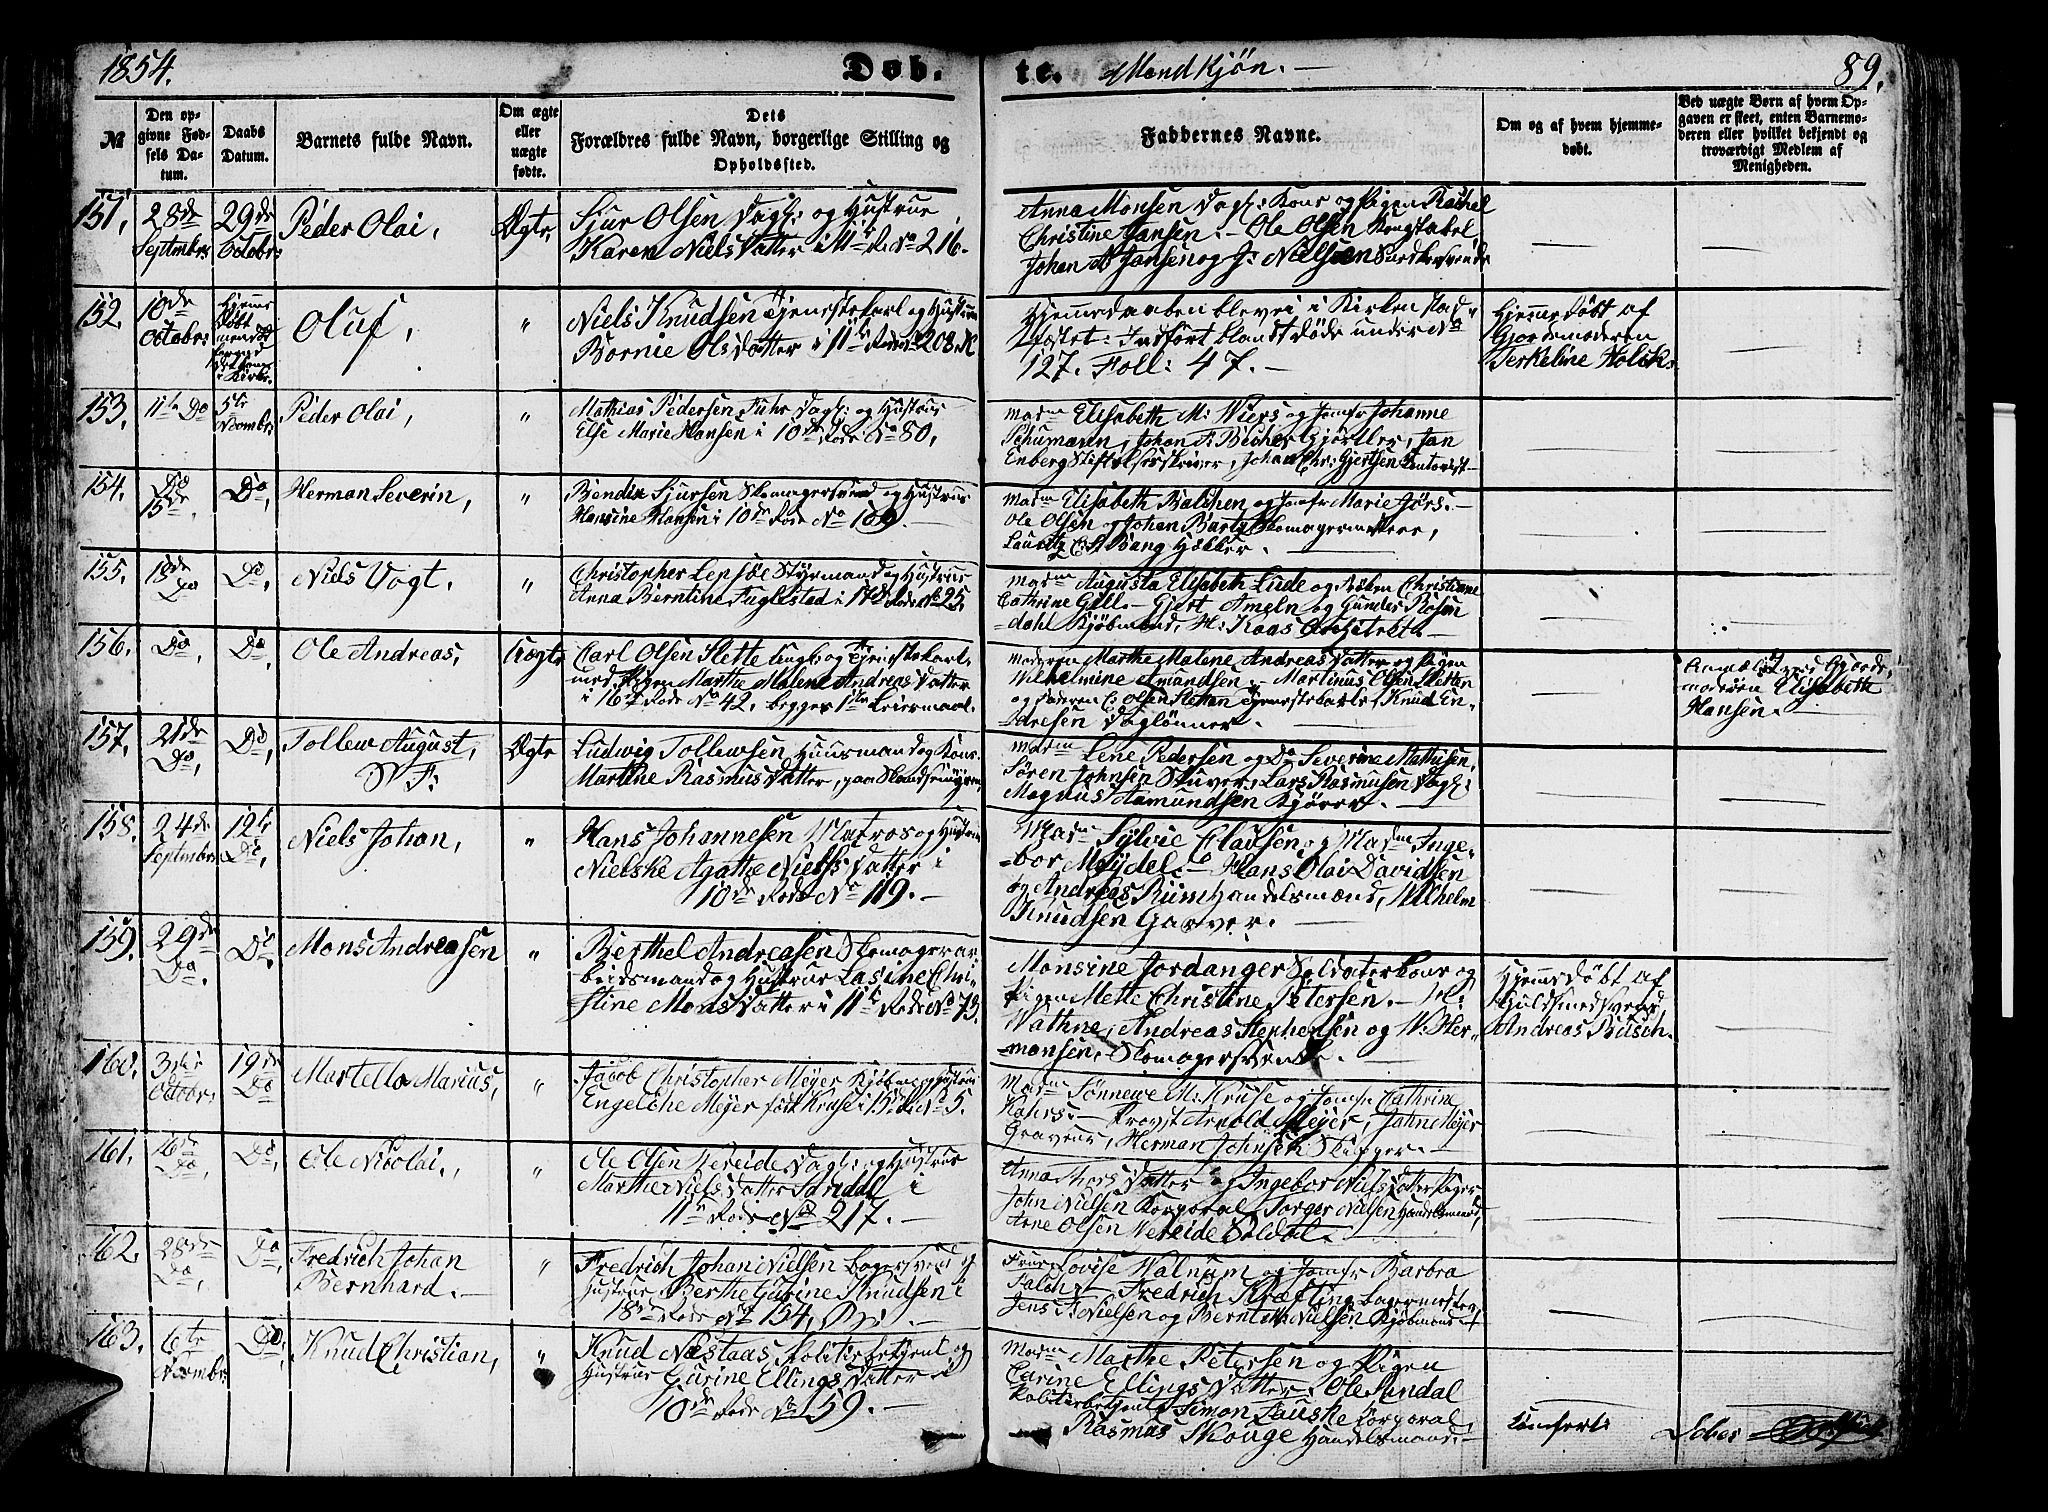 1854.
Døb.
te.
Mandkjøn.
89.
№
Den opgivne Fødsels Datum.
Daabs Datum.
Barnets fulde Navn.
Om ægte eller uægte fødte.
Dets Forældres fulde Navn, borgerlige Stilling og Opholdssted.
Faddernes Navne.
Om og af hvem hjemmedøbt.
Ved uægte Børn af hvem Opgaven er skeet, enten Barnemoderen eller hvilket bekjendt og troværdigt Medlem af Menigheden.
151. 28de Septembr: 29de Octobr: Peder Olai, Ægte,
Sjur Olsen Dagl: og Hustrue
Karen Niels Datter i 11te R. No 216.
Anna Monsen Dagl: Kone og Pigen Rachel
Christine Jansen. - Ole Olsen Konstabel
Johan A Jansen og J: Nielsen
152. 10de Octobr: Oluf, "
Niels Knudsen Tjenestekarl og Hustrue
Bornie Ols Datter i 11te Rode No 208.
Hjemmedaaben blev ei i Kirken stad-
fæstet: Indført blandt Døde under No
127. Foll: 47. -
Hjemmedøbt af
Gjordemoderen
Terkeline Holck.
153. 11te Do 5te Novembr: Peder Olai, "
Mathias Pedersen Fuhr Dagl: og Hustrue
Else Marie Hansen i 10de Rode No 80,
Madm Elisabeth M: Wiers og Jomfr Johanne
Schumann, Johan F: Becher Gjørtler, Jan
Enberg Stiftelsesskriver, Johan Chr: Gjertsen
154. Do 15de Do, Herman Severin, "
Bendix Sjursen Skomagersvend og Hustrue
Hansine Hansen i 10de Rode No 109. -
Madm Elisabeth Balchen og Jomfr Marie Jørs. -
Ole Olsen og Johan Barty Skomagermestere,
Lauritz C. S. Bang Høkker. -
155. 18de Do Do, Niels Vogt, "
Christopher Lepsøe Styrmand og Hustrue
Anna Berntine Fuglestad i 17de Rode No 25,
Madm Augusta Elisabeth Lude og Frøken Christiane
Cathrine Gill. - Gjert Ameln og Gunder Rosen-
dahl Kjøbmænd, H: Kaas Architekt. -
156. Do, Do, Ole Andreas, Uægte
Carl Olsen Slette Ungk: og Tjenestekarl
med Pigen Marthe Malene Andreas Datter
i 16de Rode No 42, begges 1ste Leiermaal.
Moderen Marthe Malene Andreas Datter og Pigen
Wilhelmine Amandsen. - Martinus Olsen Sletten
og Faderen C: Olsen Sletten Tjenestekarle, Knud En-
dresen Daglønner. -
Anmeldt ved Gjorde-
moderen Elisabeth
Hansen. -
157. 21de Do, Do, Tollew August, Ægte
Ludwig Tollewsen Huusmand og Kone
Martine Rasmus Datter, paa
Madm Lene Pedersen og Do Severine Mathisen,
Søren Johnsen Skriver, Lars Rasmusen Dagl:
Magnus Aamundsen Kjører. -
158. 24de Septembr: 12te Do, Niels Johan, "
Hans Johannesen Matros og Hustrue
Nielske Agathe Niels Datter i
10de Rode No 119. -
Madm Sylvie Clausen og Madm Inge-
bor Meydel. - Hans Olai Davidsen
og Andreas Rüm Handelsmænd, Wilhelm
Knudsen Garver. -
159. 29de Do. Do. Mons Andreasen "
Berthel Andreasen Skomagerar-
beidsmand og Hustrue Lasine Chri-
stine Mons Datter i 11te Rode No 73.
Monsine Jordanger Soldaterkone og
Pigen Mette Christine Petersen. -
Wathne, Andreas Stephensen og W: Her-
mansen, Skomagersvende. -
Hjemmedøbt af
Guldsmedsvend
Andreas Büsch.
160. 3die Octobr: 19de Do Martello Marius, "
Jacob Christopher Meyer Kjøbm: og Hustrue
Engelche Meyer født Kruse i 15de R. No 5.
Madm Sønnewe M: Kruse og Jomfr Cathrine
Kahrs. - Provst Arnold Meyer, John Meyer
Graveur, Herman Johnsen Skipper. -
161. 16de Do, Do, Ole Nicolai, "
Ole Olsen Vereide Dagl: og Hustrue
Marthe Niels Datter Sandal i
11te Rode No 217. -
Anna Thors Datter og Ingebor Niels Datter Piger
John Nielsen Korporal, Torger Nielsen Handelsmand,
Arne Olsen Vereide Soldat. -
162. 28de Do, Do, Fredrich Johan
Bernhard. - "
Fredrich Johan Nielsen Bagersvend og
Hustrue Berthe Gurine Knudsen i
18de Rode No 154, -
Frue Lovise Walnum og Jomfr Barbra
Falch. - Fredrich Kræfting Bagermester
Jens F. Nielsen og Bernt Nielsen Kjøbmænd
163. 6te Novembr: Do, Knud Christian, "
Knud Næstaas Politiebetjent og
Hustrue Gurine Ellings Datter i
10de Rode No 159. -
Madm Marthe Petersen og Pigen
Carine Ellings Datter. Ole Sandal
Politiebetjent, Simon Fauske Korporal,
Rasmus Skouge Handelsmand. -
Confert: